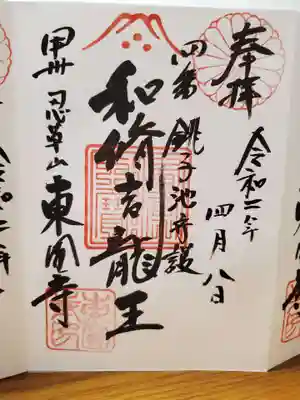 奉拝
令和二年
四月八日
四番 銚子池守護
和脩吉龍王
甲州 忍草山 東圓寺